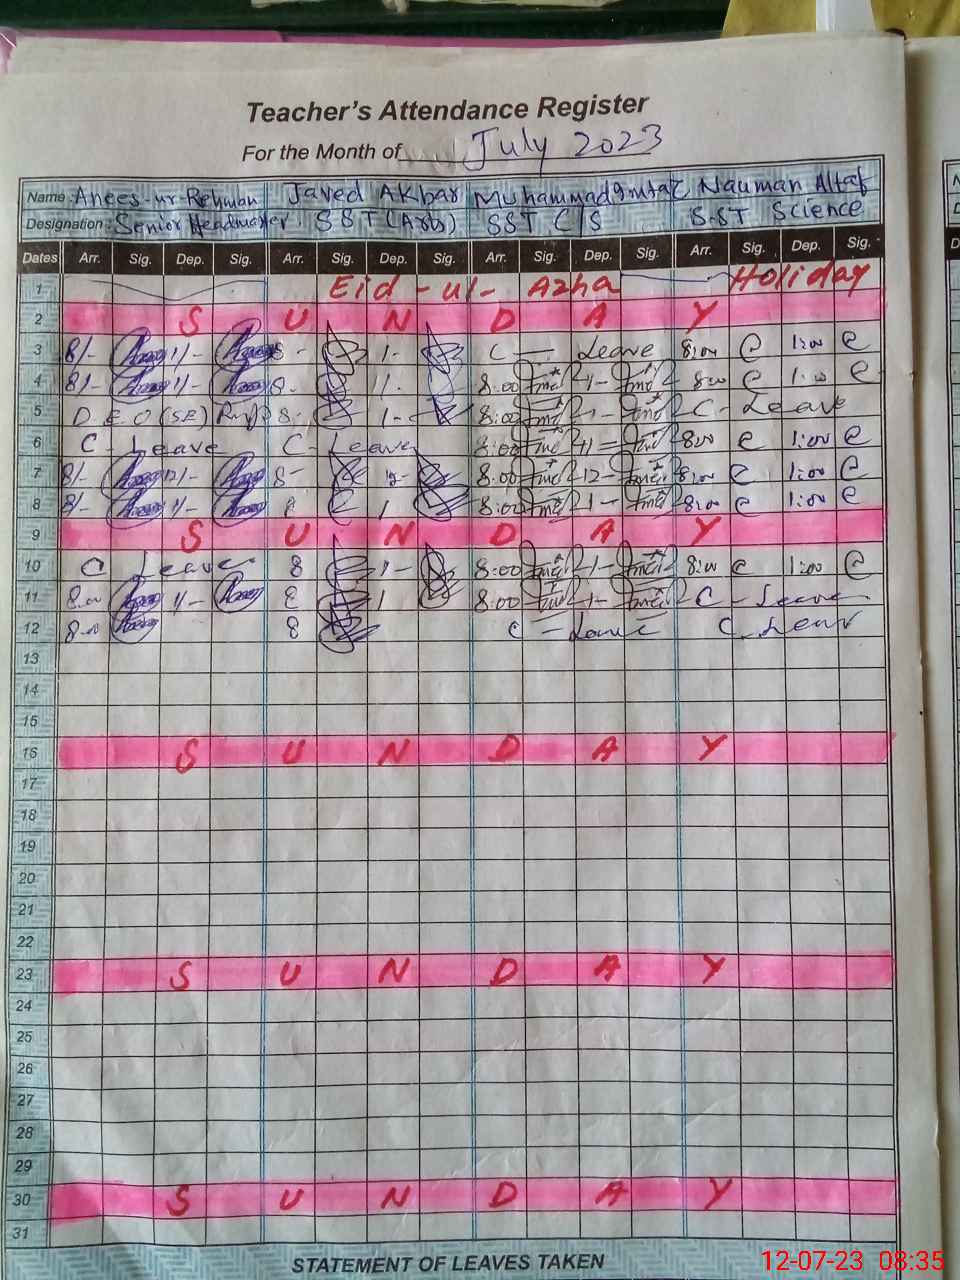 Teacher's Attendance Register
For the Month of July 2023
Name : Anees-ur-Rehman Javed Akbar Muhammad Imtiaz Nauman Altaf
Designation : Senior Headmaster. SST (Arb) SST C/S S.ST Science
Dates Arr. Sig. Dep. Sig. Arr. Sig. Dep. Sig. Arr. Sig. Dep. Sig. Arr. Sig. Dep. Sig.
1 Eid-ul-Azha Holiday
2 S U N D A Y
3 8/- 1/- 8- 1- C — Leave 8:00 1:00
4 8/- 1/- 8- 1/- 8:00 1- 8:00 1:00
5 D.E.O (SE) 8- 1- 8:00 1- C- Leave
6 C - Leave C - Leave 8:00 11= 8:00 1:00
7 8/- 12/- 8- 12- 8:00 12- 8:00 1:00
8 8/- 1/- 8 1 8:00 1- 8:00 1:00
9 S U N D A Y
10 C Leave 8 1- 8:00 1- 8:00 1:00
11 8.00 1/- 8 1 8:00 1- C - Leave
12 8.00 8 C - Leave C Leav
13
14
15
16 S U N D A Y
17
18
19
20
21
22
23 S U N D A Y
24
25
26
27
28
29
30 S U N D A Y
31
STATEMENT OF LEAVES TAKEN
12-07-23 08:35